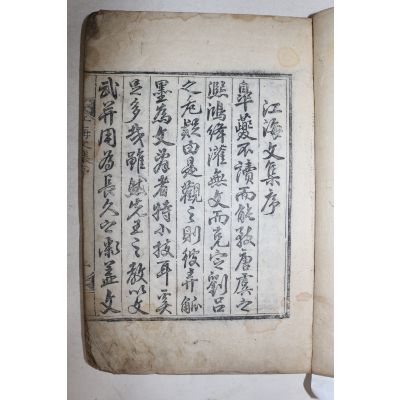 江海文集序
皐夔不讀而能致唐虞之
熙鴻絳灌無文而克定劉呂
之危疑由是觀之則彼弄觚
墨為文者特小技耳奚
足多哉雖然先王之敎以文
武并用為長久之術盖文